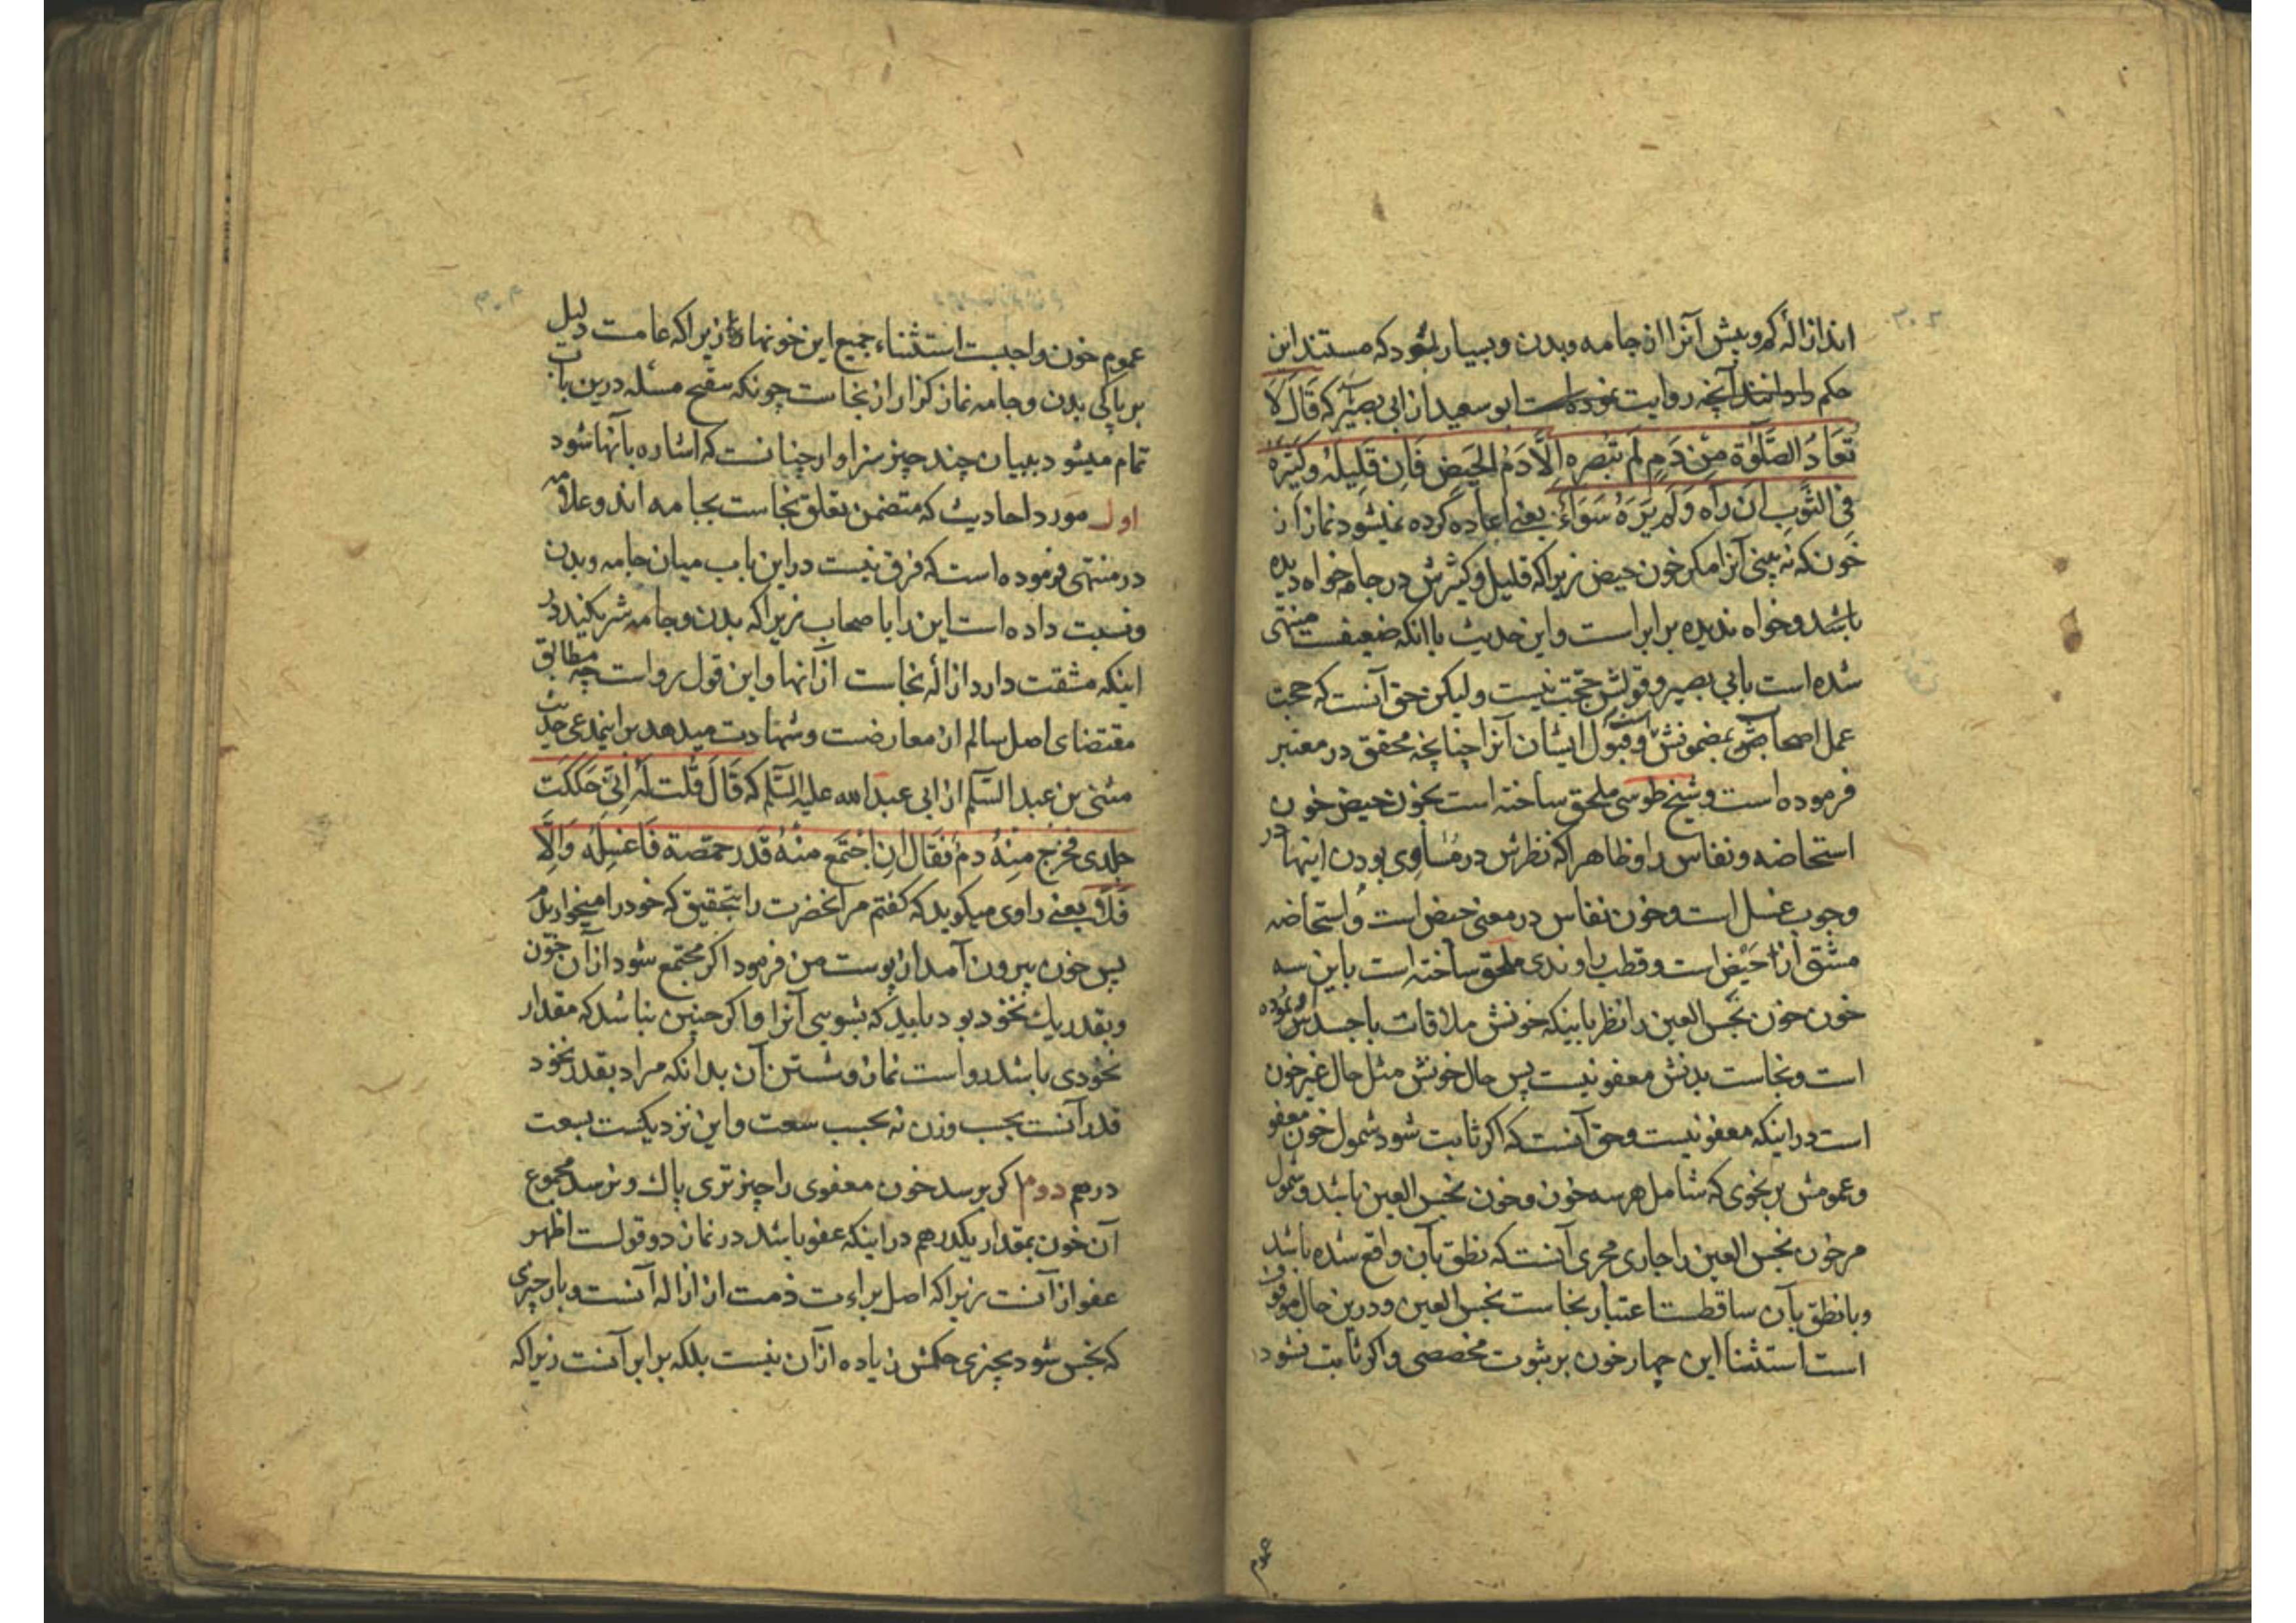 اند ازالهٔ کم و بیش آنرا از جامه و بدن و بسیار بشود که مستند این
حکم دارانند آنچه روایت نموده است ابو سعید از ابی بصیر که قَالَ لَا
تُعَادُ الصَّلٰوة مِنْ دَمٍ لَم تبْصُره اِلَّا دَمُ الحَیض فَاِن قَلِیلَهُ وکَثیرَهُ
فی الثَّوبِ اِن رَآه وَ لَم یَرَهُ سَوَاءٌ یعنی اعاده کرده نمیشود نماز از
خونکه نه بینی آنرا مکر خون حیض زیرا که قلیل و کثیرش در جامه خواه دیده
باشد و خواه ندیده برابر است و این حدیث با انکه ضعیفست منتهی
شده است بابی بصیر و قولش حجت نیست و لیکن حق آنست که حجت
عمل اصحابست بمضمونش و قبول ایشان آنرا چنانچه محقق در معتبر
فرموده است و شیخ طوسی ملحق ساخته است بخون حیض خون
استحاضه و نفاس را و ظاهرا که نظرش در مساوی بودن اینها در
وجوب غسل است و خون نفاس در معنی حیض است و استحاضه
مشتق از حَیْض است و قطب راوندی ملحق ساخته است باین سه
خون خون نجس العین را نظر باینکه خونش ملاقات با جسدش نموده
است و نجاست بدنش معفو نیست پس حال خونش مثل حال غیر خون
است در اینکه معفو نیست و حق آنست که اکر ثابت شود شمول خون معفو
و عمومش بر نحوی که شامل هر سه خون و خون نجس العین باشد و شمول
مر خون نجس العین را جاری مجری آنست که نطق بآن واقع شده باشد
و با نطق بآن ساقطست اعتبار نجاست نجس العین و درین حال موقوف
است استثنا این چهار خون بر ثبوت مخصصی و اکر ثابت نشود
عموم خون واجبست استثناء جمیع این خونها زیرا که عامست دلیل
بر پاکی بدن و جامه نماز کزار از نجاست چونکه مسئله درین باب
تمام میشود ببیان چند چیز سزاوار چنانست که اشاره بآنها شود
اول مورد احادیث که متضمن تعلق نجاست بجامه اند و علامه
در منتهی فرموده است که فرق نیست در این باب میان جامه و بدن
و نسبت داده است این را باصحاب زیرا که بدن و جامه شریکند در
اینکه مشقت دارد ازالهٔ نجاست از انها و این قول رواست چه مطابق
مقتضای اصل سالم از معارضت و شهادت میدهد بر اینمدعی حدیث
مثنی بن عبد السَّلَم از ابی عبد الله علیه السَّلَم که قَالَ قُلت لَهُ اِنّی حَکَکتُ
جلدی فخرج مِنْهُ دمٌ فَقَال اِن اجْتَمع مِنْهُ قَدر حمّصة فَاغسِلهُ وَ اِلَّا
فَلَا یعنی راوی میکوید که کفتم مر انحضرت را بتحقیق که خود را میخوارم
پس خون بیرون آمد از پوست من فرمود اکر مجتمع شود از آن خون
و بقدر یک نخود بود باید که بشویی آنرا و اکر چنین نباشد که مقدار
نخودی باشد رواست نماز و شستن آن بدانکه مراد بقدر نخود
قدر آنست بحسب وزن نه بحسب سعت و این نزدیکست بسعت
درهم دوم اکر برسد خون معفوی را چیز تری پاک و نرسد مجموع
آن خون بمقدار یکدرهم در اینکه عفو باشد در نماز دو قولست اظهر
عفو از آنست زیرا که اصل براءت ذمت از ازاله آنست و بار چیزی
که نجس شود بچیزی حکمش زیاده از آن نیست بلکه برابر آنست زیرا که